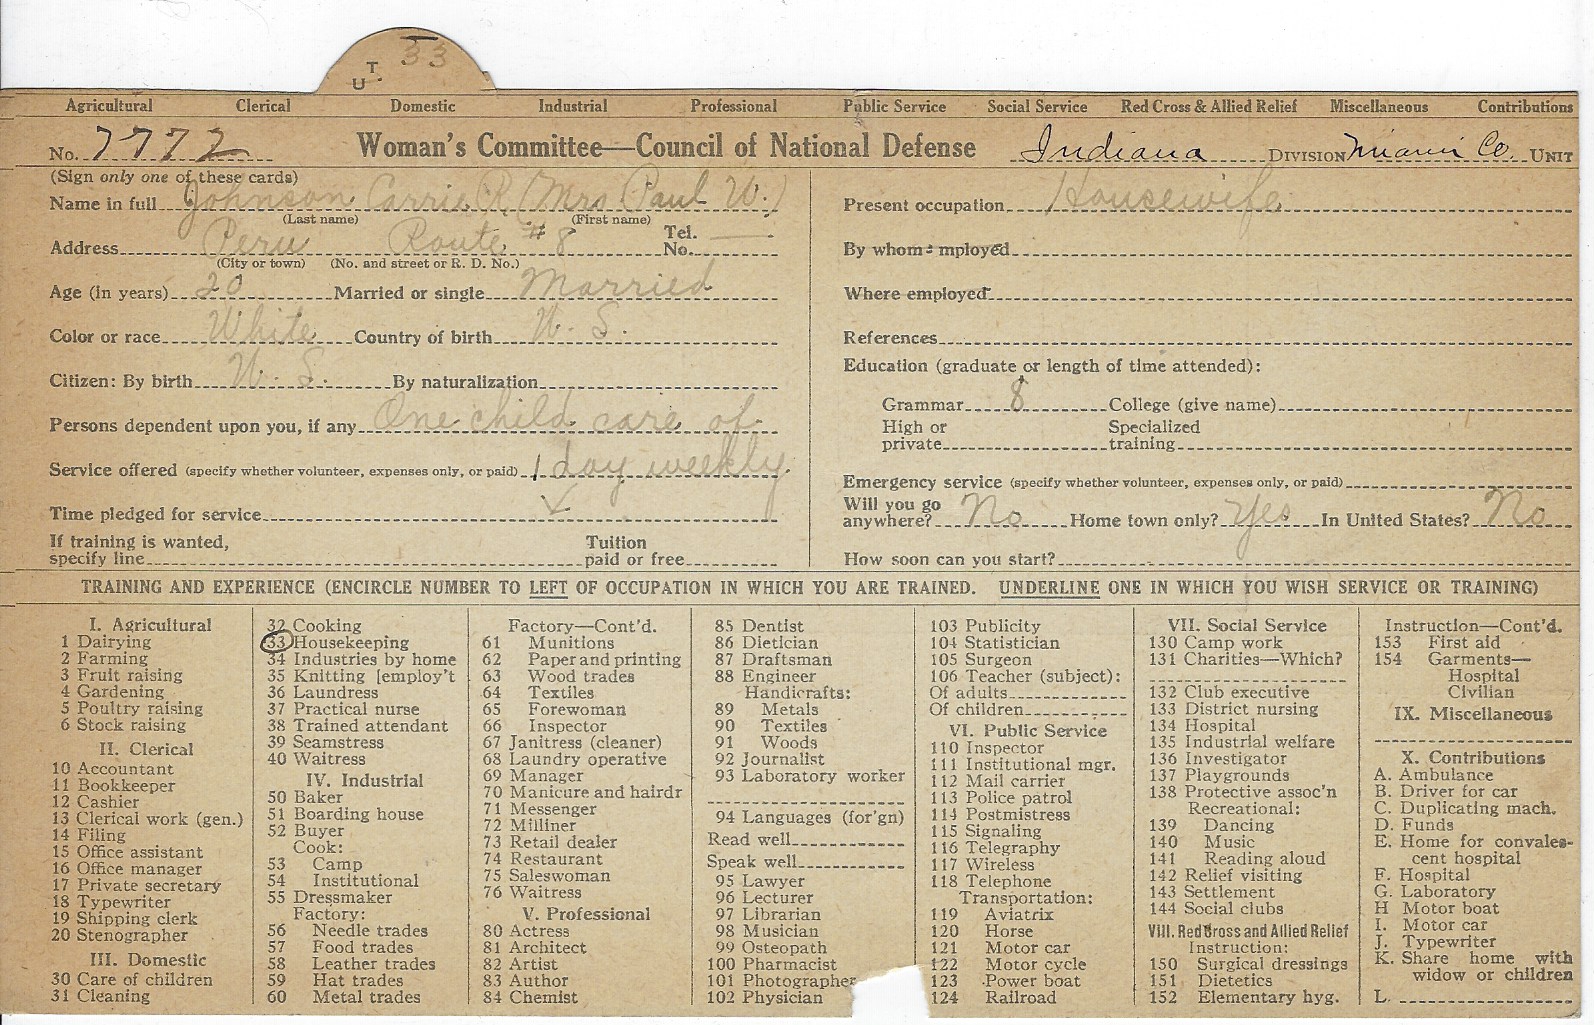 U T. 33
Agricultural Clerical Domestic Industrial Professional Public Service Social Service Red Cross & Allied Relief Miscellaneous Contributions
No. 7772 Woman's Committee—Council of National Defense Indiana DIVISION Miami Co. UNIT
(Sign only one of these cards)
Name in full Johnson Carrie R (Mrs Paul W.)
(Last name) (First name)
Address Peru Route #8 Tel. No. —
(City or town) (No. and street or R. D. No.)
Age (in years) 20 Married or single Married
Color or race White Country of birth U. S.
Citizen: By birth U. S. By naturalization
Persons dependent upon you, if any One child care of
Service offered (specify whether volunteer, expenses only, or paid) 1 day weekly
Time pledged for service
If training is wanted,
specify line
Tuition
paid or free
Present occupation Housewife
By whom employed
Where employed
References
Education (graduate or length of time attended):
Grammar 8 College (give name)
High or
private
Specialized
training
Emergency service (specify whether volunteer, expenses only, or paid)
Will you go
anywhere? No Home town only? Yes In United States? No
How soon can you start?
TRAINING AND EXPERIENCE (ENCIRCLE NUMBER TO LEFT OF OCCUPATION IN WHICH YOU ARE TRAINED. UNDERLINE ONE IN WHICH YOU WISH SERVICE OR TRAINING)
I. Agricultural
1 Dairying
2 Farming
3 Fruit raising
4 Gardening
5 Poultry raising
6 Stock raising
II. Clerical
10 Accountant
11 Bookkeeper
12 Cashier
13 Clerical work (gen.)
14 Filing
15 Office assistant
16 Office manager
17 Private secretary
18 Typewriter
19 Shipping clerk
20 Stenographer
III. Domestic
30 Care of children
31 Cleaning
32 Cooking
33 Housekeeping
34 Industries by home
35 Knitting [employ't
36 Laundress
37 Practical nurse
38 Trained attendant
39 Seamstress
40 Waitress
IV. Industrial
50 Baker
51 Boarding house
52 Buyer
Cook:
53 Camp
54 Institutional
55 Dressmaker
Factory:
56 Needle trades
57 Food trades
58 Leather trades
59 Hat trades
60 Metal trades
Factory—Cont'd.
61 Munitions
62 Paper and printing
63 Wood trades
64 Textiles
65 Forewoman
66 Inspector
67 Janitress (cleaner)
68 Laundry operative
69 Manager
70 Manicure and hairdr
71 Messenger
72 Milliner
73 Retail dealer
74 Restaurant
75 Saleswoman
76 Waitress
V. Professional
80 Actress
81 Architect
82 Artist
83 Author
84 Chemist
85 Dentist
86 Dietician
87 Draftsman
88 Engineer
Handicrafts:
89 Metals
90 Textiles
91 Woods
92 Journalist
93 Laboratory worker
94 Languages (for'gn)
Read well
Speak well
95 Lawyer
96 Lecturer
97 Librarian
98 Musician
99 Osteopath
100 Pharmacist
101 Photographer
102 Physician
103 Publicity
104 Statistician
105 Surgeon
106 Teacher (subject):
Of adults
Of children
VI. Public Service
110 Inspector
111 Institutional mgr.
112 Mail carrier
113 Police patrol
114 Postmistress
115 Signaling
116 Telegraphy
117 Wireless
118 Telephone
Transportation:
119 Aviatrix
120 Horse
121 Motor car
122 Motor cycle
123 Power boat
124 Railroad
VII. Social Service
130 Camp work
131 Charities—Which?
132 Club executive
133 District nursing
134 Hospital
135 Industrial welfare
136 Investigator
137 Playgrounds
138 Protective assoc'n
Recreational:
139 Dancing
140 Music
141 Reading aloud
142 Relief visiting
143 Settlement
144 Social clubs
VIII. Red Cross and Allied Relief
Instruction:
150 Surgical dressings
151 Dietetics
152 Elementary hyg.
Instruction—Cont'd.
153 First aid
154 Garments—
Hospital
Civilian
IX. Miscellaneous
X. Contributions
A. Ambulance
B. Driver for car
C. Duplicating mach.
D. Funds
E. Home for convales-
cent hospital
F. Hospital
G. Laboratory
H Motor boat
I. Motor car
J. Typewriter
K. Share home with
widow or children
L.